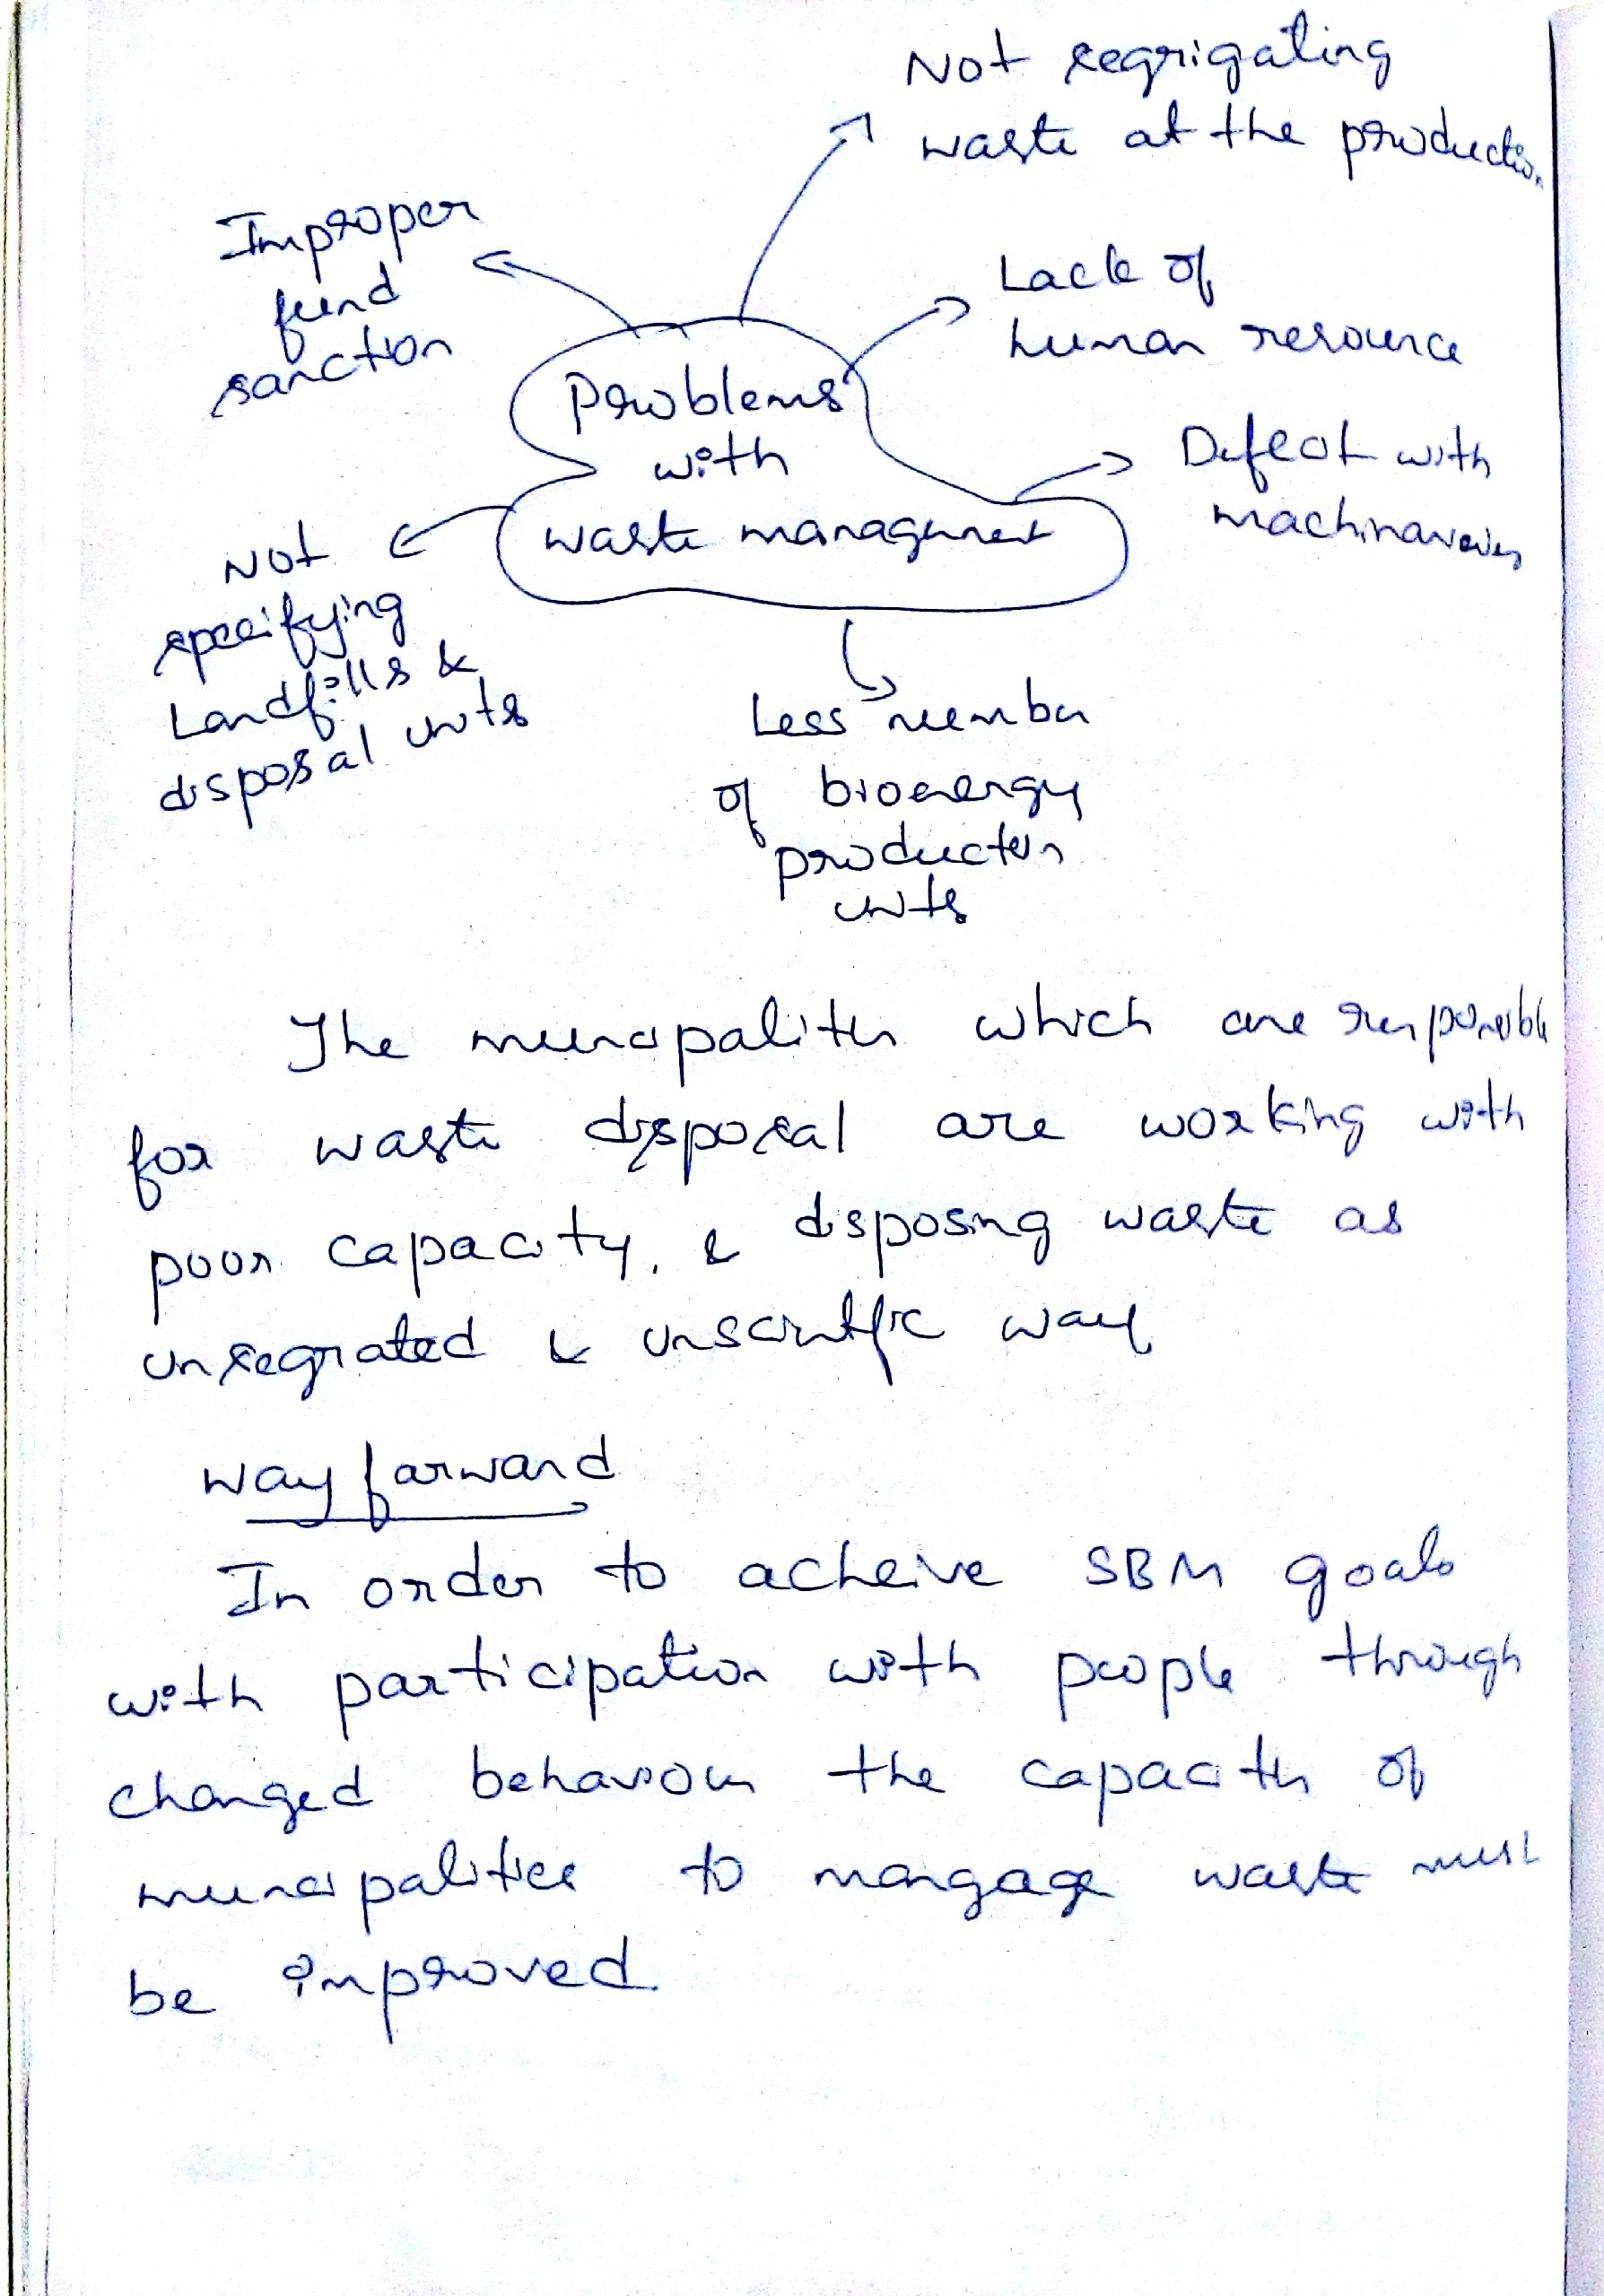 Not segrigating
waste at the production
Improper
fund
sanction
Lack of
human resource
Problems
with
waste managment
Defect with
machinareies
Not
specifying
Landfills &
disposal units
Less number
of bioenergy
production
units
The muncipalities which are responsible
for waste disposal are working with
poor capacity, & disposing waste as
unsegrated & unscintific way
way forward
In order to acheive SBM goals
with participation with people through
changed behaviour the capacity of
muncipalities to mangage waste must
be improved